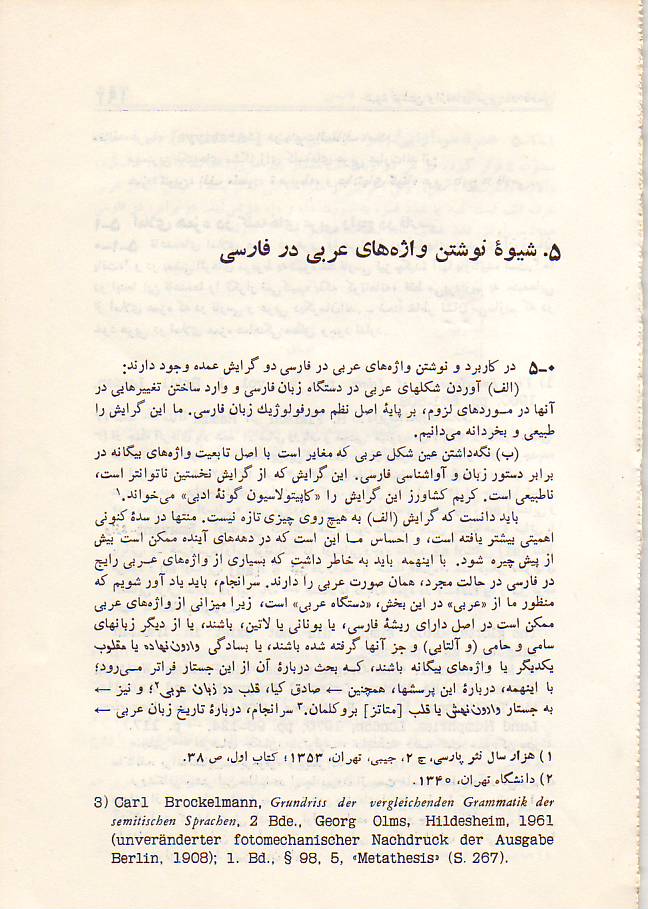 ۵. شیوۀ نوشتن واژه‌های عربی در فارسی
۵-۰ در کاربرد و نوشتن واژه‌های عربی در فارسی دو گرایش عمده وجود دارند:
(الف) آوردن شکلهای عربی در دستگاه زبان فارسی و وارد ساختن تغییرهایی در
آنها در مـوردهای لزوم، بر پایۀ اصل نظم مورفولوژیك زبان فارسی. ما این گرایش را
طبیعی و بخردانه می‌دانیم.
(ب) نگه‌داشتن عین شکل عربی که مغایر است با اصل تابعیت واژه‌های بیگانه در
برابر دستور زبان و آواشناسی فارسی. این گرایش که از گرایش نخستین ناتوانتر است،
ناطبیعی است. کریم کشاورز این گرایش را «کاپیتولاسیون گونۀ ادبی» می‌خواند.۱
باید دانست که گرایش (الف) به هیچ روی چیزی تازه نیست. منتها در سدۀ کنونی
اهمیتی بیشتر یافته است، و احساس مـا این است که در دهه‌های آینده ممکن است بیش
از پیش چیره شود. با اینهمه باید به خاطر داشت که بسیاری از واژه‌های عـربی رایج
در فارسی در حالت مجرد، همان صورت عربی را دارند. سرانجام، باید یاد آور شویم که
منظور ما از «عربی» در این بخش، «دستگاه عربی» است، زیرا میزانی از واژه‌های عربی
ممکن است در اصل دارای ریشۀ فارسی، یا یونانی یا لاتین، باشند، یا از دیگر زبانهای
سامی و حامی (و آلتایی) و جز آنها گرفته شده باشند، یا بسادگی وادرون‌نهاده یا مقلوب
یکدیگر یا واژه‌های بیگانه باشند، کـه بحث دربارۀ آن از این جستار فراتر مـی‌رود؛
با اینهمه، دربارۀ این پرسشها، همچنین ← صادق کیا، قلب در زبان عربی۲؛ و نیز ←
به جستار وادرون‌نهش یا قلب [متاتز] بروکلمان.۳ سرانجام، دربارۀ تاریخ زبان عربی ←
۱) هزار سال نثر پارسی، ج ۲، جیبی، تهران، ۱۳۵۳؛ کتاب اول، ص ۳۸.
۲) دانشگاه تهران، ۱۳۴۰.
3) Carl Brockelmann, Grundriss der vergleichenden Grammatik der
semitischen Sprachen, 2 Bde., Georg Olms, Hildesheim, 1961
(unveränderter fotomechanischer Nachdruck der Ausgabe
Berlin, 1908); 1. Bd., § 98, 5, «Metathesis» (S. 267).